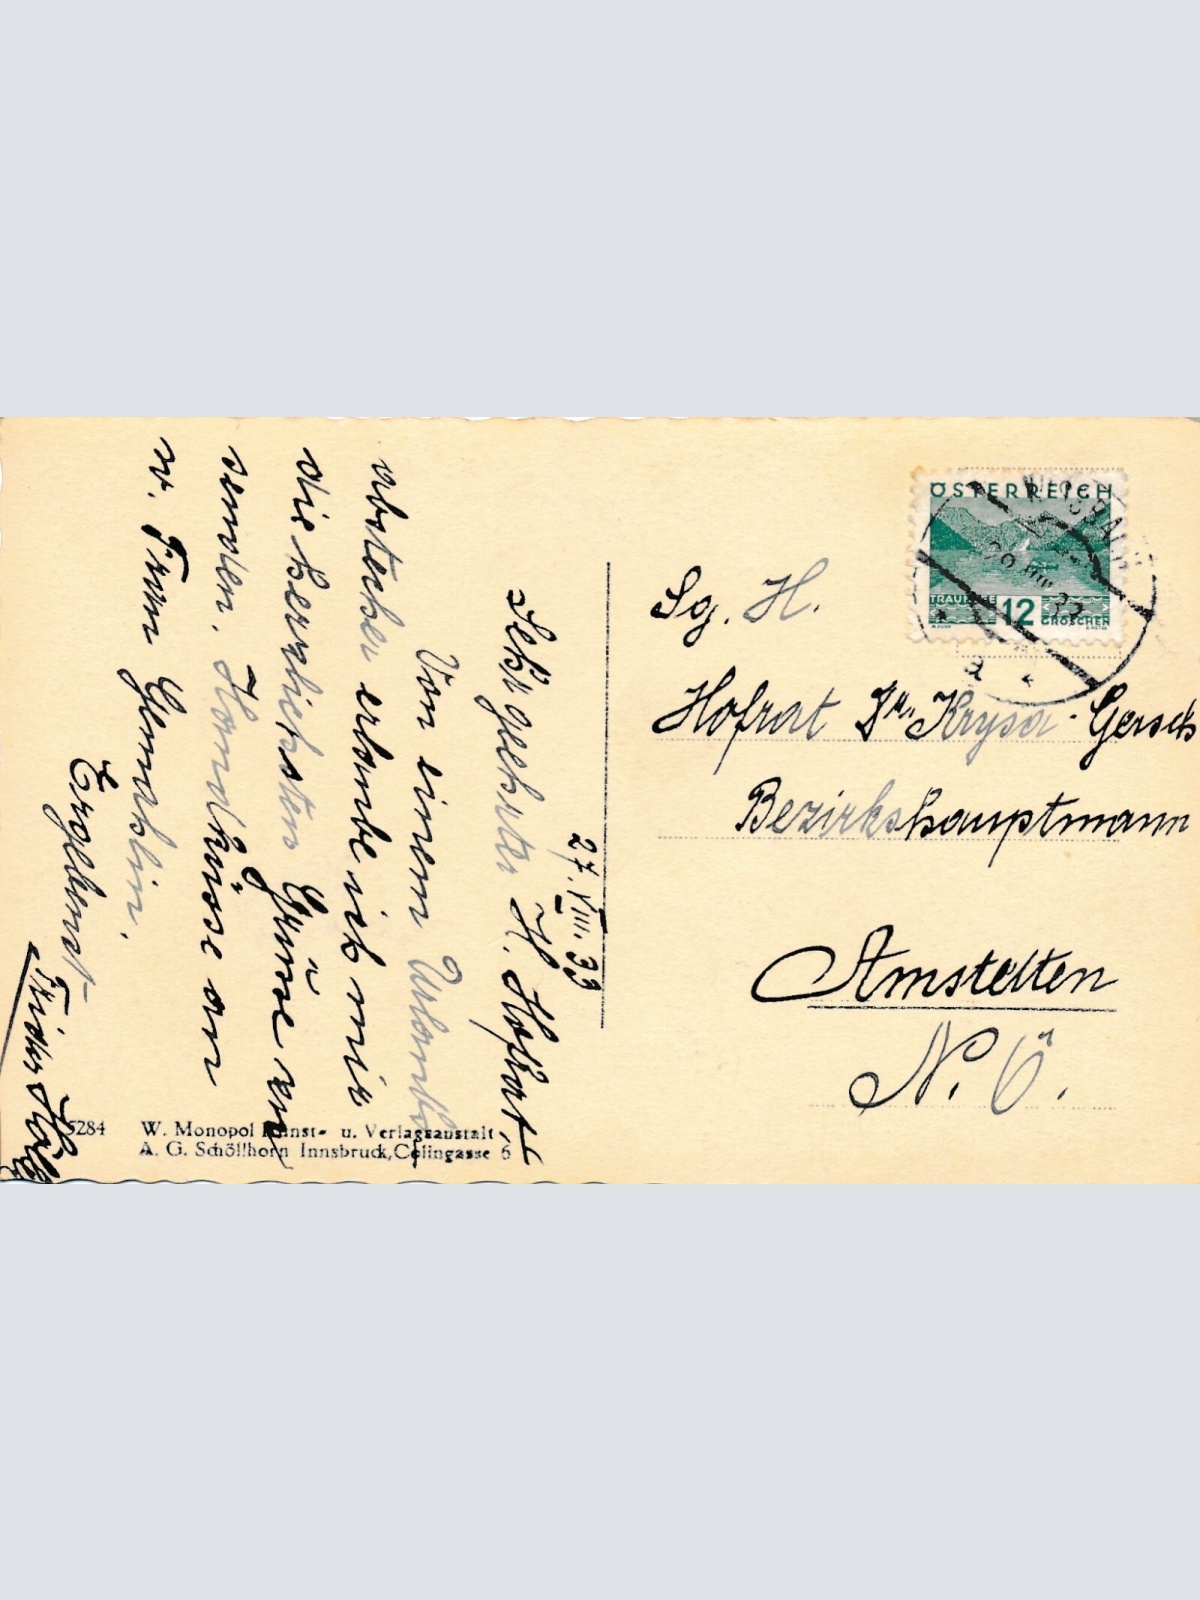 27. VIII. 33
Sehr geehrter H. Hofrat!
Von einem Urlaubs
abstecher erlaube ich mir
die herzlichsten Grüsse zu
senden. Handküsse an
w. Frau Gemahlin.
Ergebenst
5284
W. Monopol Kunst- u. Verlagsanstalt
A. G. Schöllhorn Innsbruck, Colingasse 6
ÖSTERREICH
TRAUNSEE 12 GROSCHEN
a
Sg. H.
Hofrat Dr. Krysa-Gersch
Bezirkshauptmann
Amstetten
N. Ö.